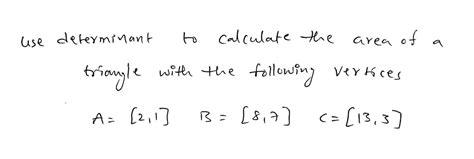 use determinant to calculate the area of a
triangle with the following vertices
A = [2,1] B = [8,7] C = [13,3]